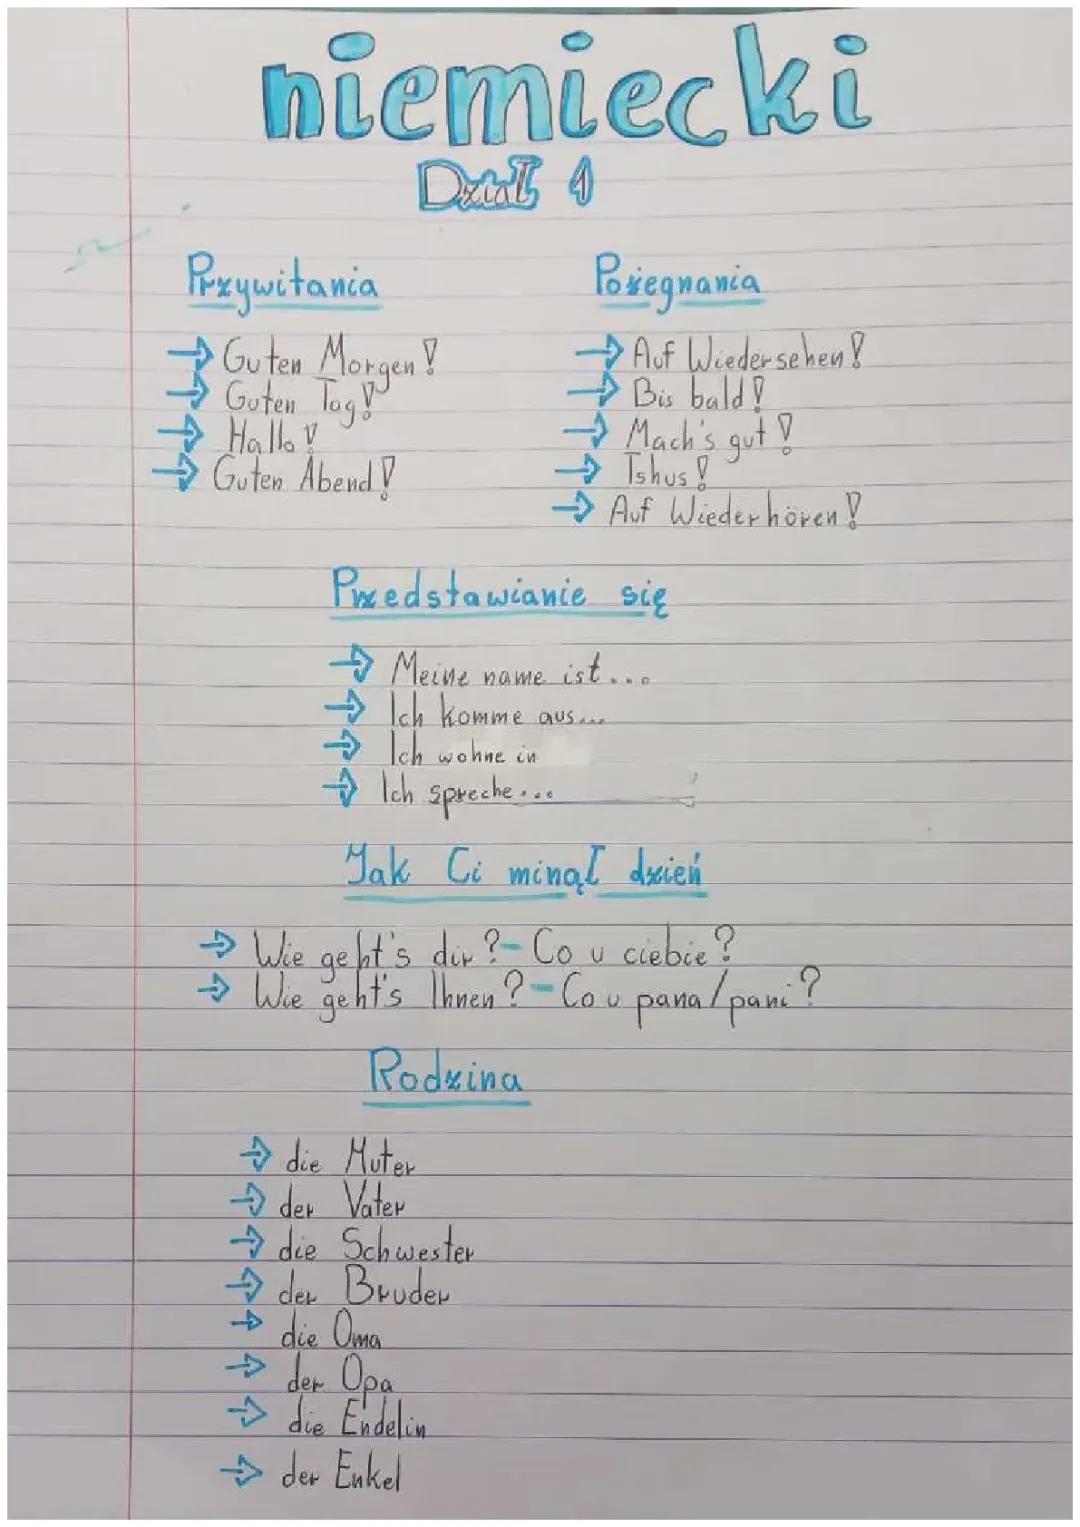 niemiecki
Dział 1
Przywitania
→ Guten Morgen!
→ Guten Tag!
→ Hallo!
→ Guten Abend!
Pożegnania
→ Auf Wiedersehen!
→ Bis bald!
→ Mach's gut!
→ Tshus!
→ Auf Wiederhören!
Przedstawianie się
→ Meine name ist...
→ Ich komme aus...
→ Ich wohne in
→ Ich spreche...
Jak Ci minął dzień
→ Wie geht's dir? - Co u ciebie?
→ Wie geht's Ihnen? - Co u pana/pani?
Rodzina
→ die Muter
→ der Vater
→ die Schwester
→ der Bruder
→ die Oma
→ der Opa
→ die Endelin
→ der Enkel